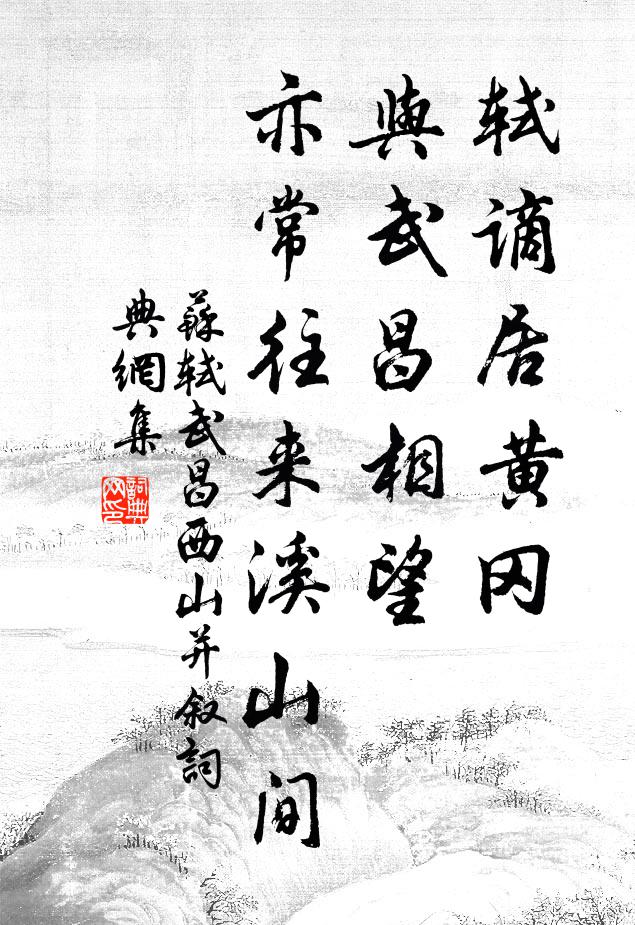 轼谪居黄冈
與武昌相望
亦常往来溪山间
蘇轼武昌西山并叙詞
典網集
詞典网印